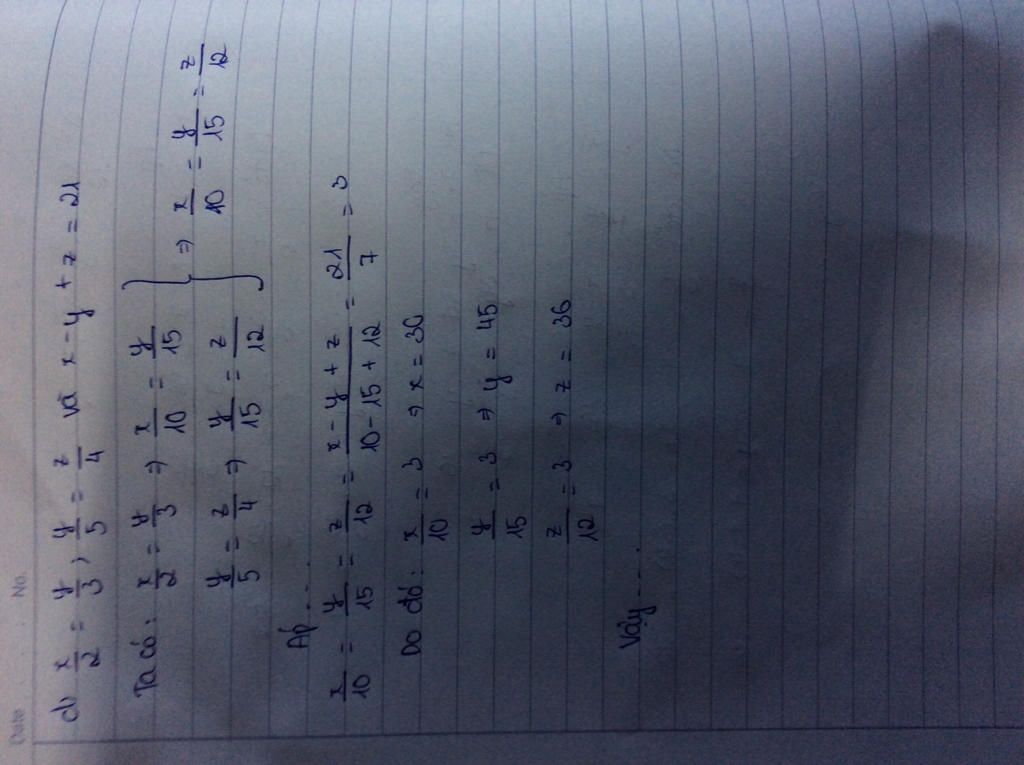 Date No.
d) x/2 = y/3 ; y/5 = z/4 và x - y + z = 21
Ta có: x/2 = y/3 ⇒ x/10 = y/15
y/5 = z/4 ⇒ y/15 = z/12 } ⇒ x/10 = y/15 = z/12
Áp ...
x/10 = y/15 = z/12 = (x - y + z)/(10 - 15 + 12) = 21/7 = 3
Do đó: x/10 = 3 ⇒ x = 30
y/15 = 3 ⇒ y = 45
z/12 = 3 ⇒ z = 36
Vậy ...